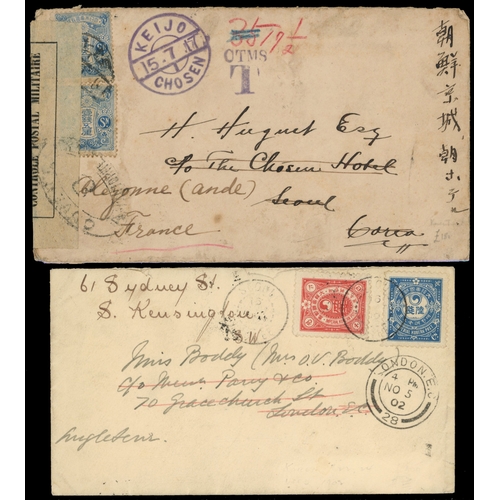 CONTROLE POSTAL MILITAIRE
KEIJO
15.7.17
CHOSEN
25/7½
CTMS
T
朝鮮京城 朝ホテル
H. Huguet Esq
c/o The Chosen Hotel
Seoul
Corea
(Ande)
France
61 Sydney St.
S. Kensington
S.W.
Miss Boddy (Mrs O.V. Boddy
c/o Messrs Parry & Co
70 Gracechurch St
London, E.C.
Angleterre
LONDON, E.C.
4 PM
NO 5
02
28